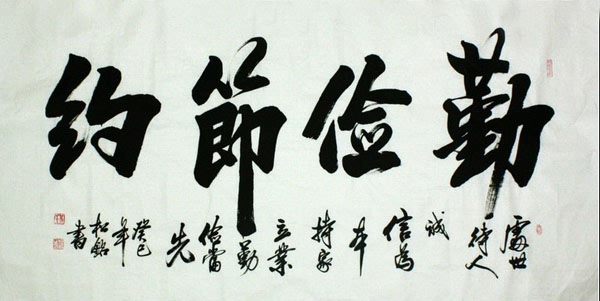 勤俭節约
處世
待人
诚
信為
本
持家
立業
勤
俭當
先
癸巳
年
松銘
書